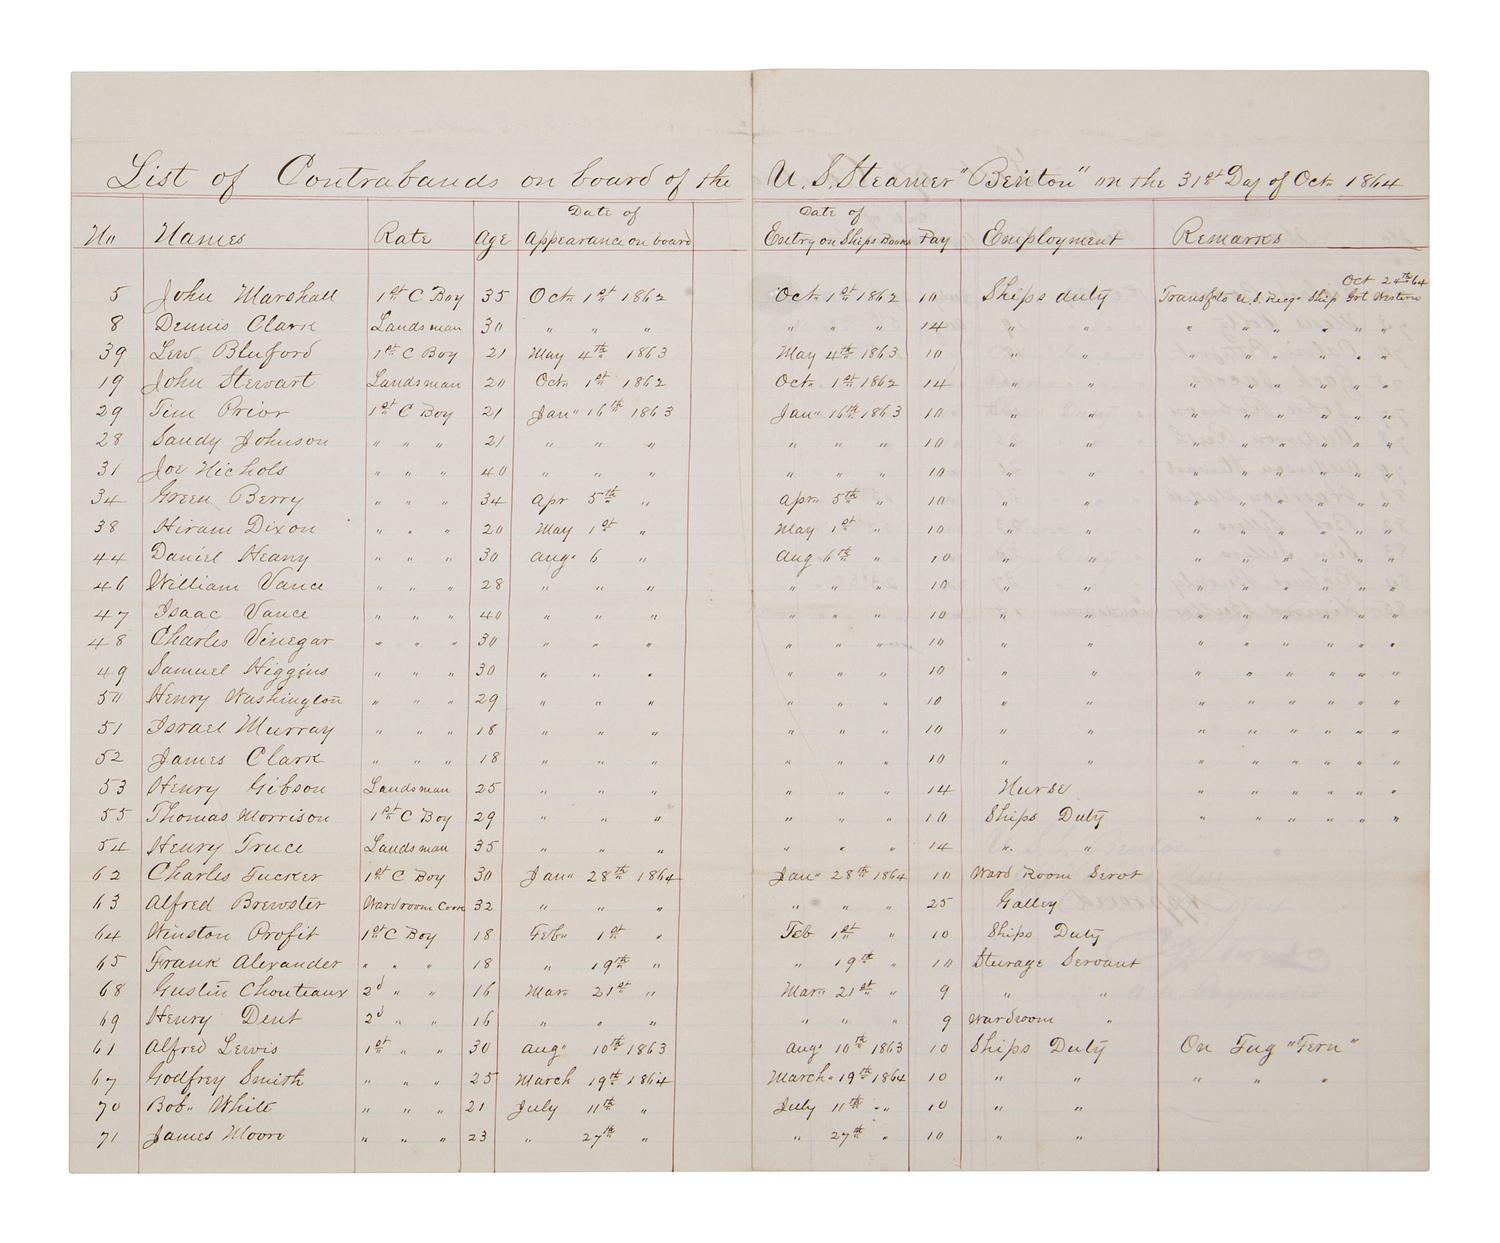 List of Contrabands on board of the U. S. Steamer "Benton" on the 31st Day of Oct. 1864
No Names Rate Age Date of Appearance on board Date of Entry on Ships Books Pay Employment Remarks
Oct 24th 64
5 John Marshall 1st C Boy 35 Oct. 1st 1862 Oct. 1st 1862 10 Ships duty Transf to U.S. Recg. Ship Grt Western
8 Dennis Clark Landsman 30 " " " " " " 14 " " " " " " " "
39 Lew Bluford 1st C Boy 21 May 4th 1863 May 4th 1863 10 " " " " " " " "
19 John Stewart Landsman 20 Oct. 1st 1862 Oct. 1st 1862 14 " " " " " " " "
29 Tim Prior 1st C Boy 21 Jan" 16th 1863 Jan" 16th 1863 10 " " " " " " " "
28 Sandy Johnson " " " 21 " " " " " " 10 " " " " " " " "
31 Joe Nichols " " " 40 " " " " " " 10 " " " " " " " "
34 Green Berry " " " 34 Apr 5th " Apr. 5th " 10 " " " " " " " "
38 Hiram Dixon " " " 20 May 1st " May 1st " 10 " " " " " " " "
44 Daniel Heany " " " 30 Aug" 6 " Aug 6th " 10 " " " " " " " "
46 William Vance " " " 28 " " " " " " 10 " " " " " " " "
47 Isaac Vance " " " 40 " " " " " " 10 " " " " " " " "
48 Charles Vinegar " " " 30 " " " " " " 10 " " " " " " " "
49 Samuel Higgins " " " 30 " " " " " " 10 " " " " " " " "
50 Henry Washington " " " 29 " " " " " " 10 " " " " " " " "
51 Israel Murray " " " 18 " " " " " " 10 " " " " " " " "
52 James Clark " " " 18 " " " " " " 10 " " " " " " " "
53 Henry Gibson Landsman 25 " " " " " " 14 Nurse " " " " " "
55 Thomas Morrison 1st C Boy 29 " " " " " " 10 Ships Duty " " " " " "
54 Henry Truce Landsman 35 " " " " " " 14 " "
62 Charles Tucker 1st C Boy 30 Jan" 28th 1864 Jan" 28th 1864 10 Ward Room Servt
63 Alfred Brewster Wardroom Cook 32 " " " " " " 25 Galley
64 Winston Profit 1st C Boy 18 Feb" 1st " Feb 1st " 10 Ships Duty
65 Frank Alexander " " " 18 " 19th " " 19th " 10 Sturage Servant
68 Gustin Chouteaux 2d " " 16 Mar. 21st " Mar. 21st " 9 " "
69 Henry Dent 2d " " 16 " " " " " " 9 Wardroom "
61 Alfred Lewis 1st " " 30 Aug" 10th 1863 Aug" 10th 1863 10 Ships Duty On Tug "Fern"
67 Godfrey Smith " " " 25 March 19th 1864 March" 19th 1864 10 " " " " "
70 Bob" White " " " 21 July 11th " July 11th " 10 " "
71 James Moore " " " 23 " 27th " " 27th " 10 " "